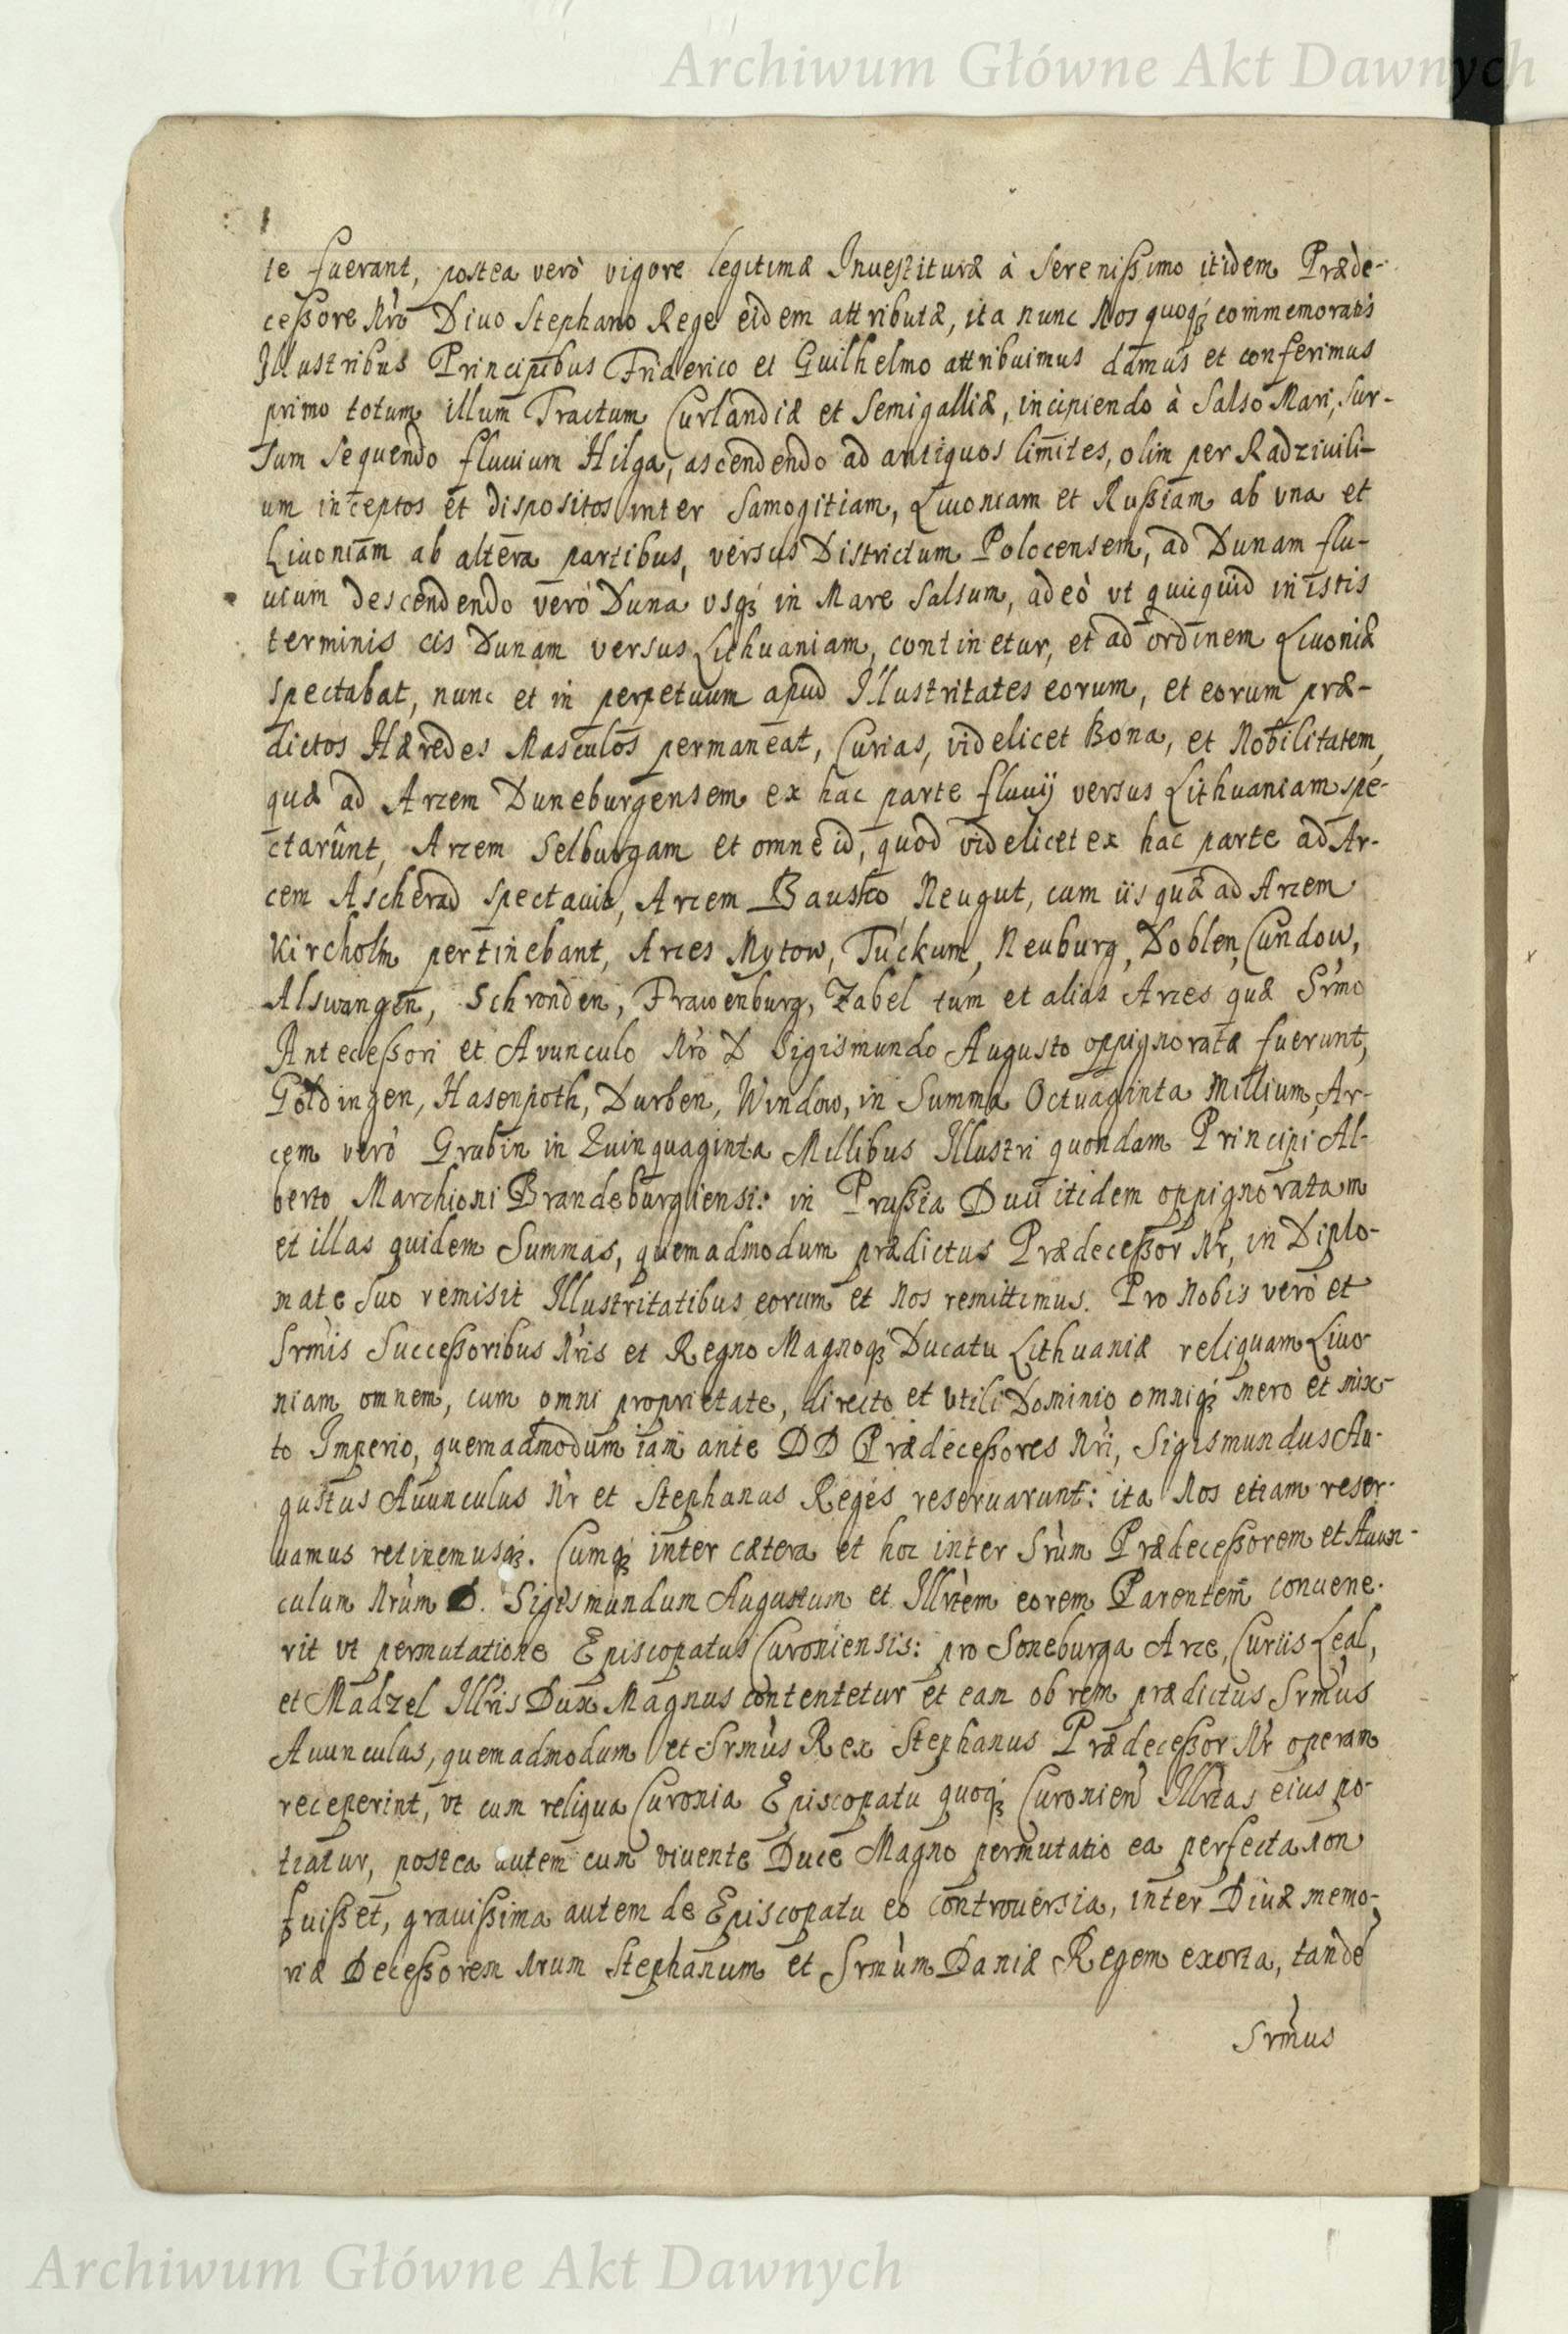 Archiwum Główne Akt Dawnych
te fuerant, postea verò vigore legitimæ Inuestituræ à Serenissimo itidem Præde-
cessore Nrò Diuo Stephano Rege eidem attributæ, ita nunc Nos quoq; commemoratis
Illustribus Principibus Friderico et Guilhelmo attribuimus damus et conferimus
primo totum illum Tractum Curlandiæ et Semigalliæ, incipiendo à Salso Mari, sur-
sum sequendo fluuium Hilga, ascendendo ad antiquos limites, olim per Radziuili-
um inceptos et dispositos inter Samogitiam, Liuoniam et Russiam ab vna et
Liuoniam ab altera partibus, versus Districtum Polocensem, ad Dunam flu-
uium descendendo verò Duna vsq; in Mare Salsum, adeò vt quicquid in istis
terminis cis Dunam versus Lithuaniam, continetur, et ad ordinem Liuoniæ
spectabat, nunc et in perpetuum apud Illustritates eorum, et eorum præ-
dictos Hæredes Masculos permaneat, Curias, videlicet Bona, et Nobilitatem,
quæ ad Arcem Duneburgensem ex hac parte fluuij versus Lithuaniam spe-
ctarûnt, Arcem Selburgam et omne id, quod videlicet ex hac parte ad Ar-
cem Ascherad spectauit, Arcem Bausko, Neugut, cum iis quæ ad Arcem
Kircholm pertinebant, Arces Mytow, Tuckum, Neuburg, Doblen, Candow,
Alswangen, Schronden, Frawenburg, Zabel tum et alias Arces quæ Srmo
Antecessori et Avunculo Nrò D Sigismundo Augusto oppignoratæ fuerunt,
Goldingen, Hasenpoth, Durben, Window, in Summa Octuaginta Millium, Ar-
cem verò Grubin in Quinquaginta Millibus Illustri quondam Principi Al-
berto Marchioni Brandeburgiensi: in Prussia Duci itidem oppignoratam
et illas quidem Summas, quemadmodum prædictus Prædecessor Nr, in Diplo-
mate suo remisit Illustritatibus eorum et Nos remittimus. Pro Nobis verò et
Srmis Successoribus Nris et Regno Magnoq; Ducatu Lithuaniæ reliquam Liuo
niam omnem, cum omni proprietate, directo et vtili Dominio omniq; mero et mix-
to Imperio, quemadmodum iam ante DD Prædecessores Nri, Sigismundus Au-
gustus Auunculus Nr et Stephanus Reges reseruarunt: ita Nos etiam reser-
uamus retinemusq;. Cumq; inter cætera et hoc inter Srùm Prædecessorem et Auun-
culum Nrùm D. Sigismundum Augustum et Illrtèm eorem Parentem conuene-
rit vt permutatione Episcopatus Curoniensis: pro Soneburga Arce, Curiis Leal,
et Madzel Illris Dux Magnus contentetur et eam ob rem prædictus Srmùs
Auunculus, quemadmodum et Srmùs Rex Stephanus Prædecessor Nr operam
receperint, vt cum reliqua Curonia Episcopatu quoq; Curonien Illrtas eius po-
tiatur, postea autem cum viuente Duce Magno permutatio ea perfecta non
fuisset, grauissima autem de Episcopatu eo controuersia, inter Diuæ memo-
riæ Decessorem Nrum Stephanum et Srmùm Daniæ Regem exorta, tandẽ
Srmus
Archiwum Główne Akt Dawnych